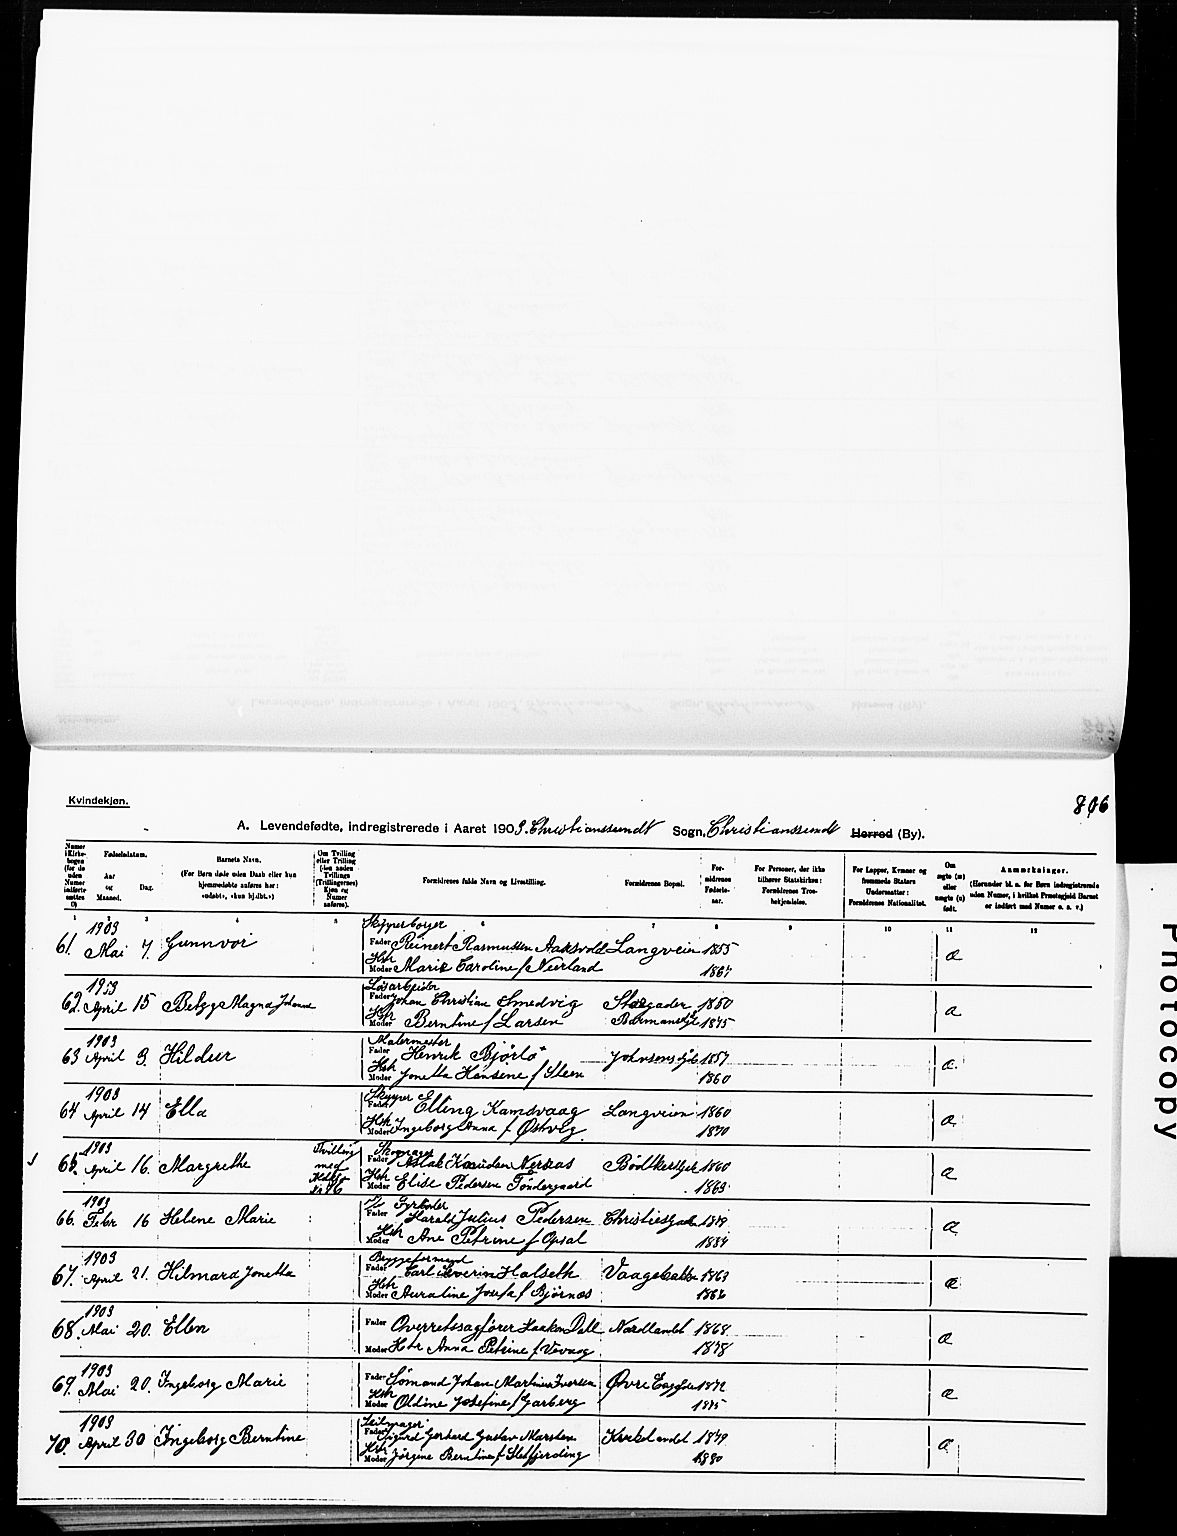 Kvindekjøn.
806
A. Levendefødte, indregistrerede i Aaret 1903. Christianssundt Sogn, Christianssundt Herred (By).
Numer i Kirkebogen (for de uden Numer indførte sættes 0)
Fødselsdatum.
Aar og Maaned.
Dag.
Barnets Navn.
(For Børn døde uden Daab eller kun hjemmedøbte anføres her: «udøbt», «kun hj.dbt.»)
Om Tvilling eller Trilling (den anden Tvillings (Trillingernes) Kjøn og Numer anføres).
Forældrenes fulde Navn og Livsstilling.
Forældrenes Bopæl.
Forældrenes Fødselsaar.
For Personer, der ikke tilhører Statskirken: Forældrenes Trosbekjendelse.
For Lapper, Kvæner og fremmede Staters Undersaatter: Forældrenes Nationalitet.
Om ægte (æ) eller uægte (u) født.
Anmærkninger.
(Herunder bl. a. for Børn indregistrerede uden Numer, i hvilket Præstegjeld Barnet er indført med Numer o. s. v.)
1 2 3 4 5 6 7 8 9 10 11 12
1903 Skipperborger
61. Mai 7. Gunnvor Fader Reinert Rasmussen Aaksvold Langveien 1855 æ
Hstr Moder Marie Caroline f. Neerland 1867
1903 Løsarbeider
62. April 15 Betzy Magna Johanne Fader Johan Christian Smedvig 1850 æ
Hstr Moder Berntine f. Larsen 1875
1903 Malermester
63 April 9. Hildur Fader Henrik Bjørlo 1857 æ.
Hstr Moder Jonetta Hansene f. Steen 1860
1903 Skipper
64 April 14 Ella Fader Elling Kamsvaag Langveien 1860 æ
Hstr Moder Ingeborg Anna f. Østvig. 1870
1903 Tvilling Skomager
65. April 16. Margrethe med Fader Aslak Knudsen Nersæs Bødkertjer 1860 æ
Hstr Moder Elise Pedersen Tøndergaard 1863
1903 Fyrbøder
66. Febr 16 Helene Marie Fader Harald Julius Pedersen 1879 æ
Hstr Moder Ane Petrine f. Opsal 1884
1903 Bryggeformand
67. April 21. Hilmara Jonetta Fader Carl Severin Halseth Vaagebakken 1863 æ
Hstr Moder Auraline Josefa f. Bjørnæs
1903
68. Mai 20. Ellen Fader Overretssagfører Haaken Dall Nordlandet 1868. æ
Moder Hstr Anna Petrine f. Vevaag 1878
1903
69. Mai 20. Ingeborg Marie Fader Sømand Johan Martinus Iversen Øvre 1872 æ
Hstr Moder Oldine Josefine f. Garberg 1875
1903 Seilmager
70. April 30 Ingeborg Berntine Fader Sigurd Gerhard Gustav Marsten Kirkelandet 1879 æ
Hstr Moder Jørgine Berntine f. 1880
Photocopy